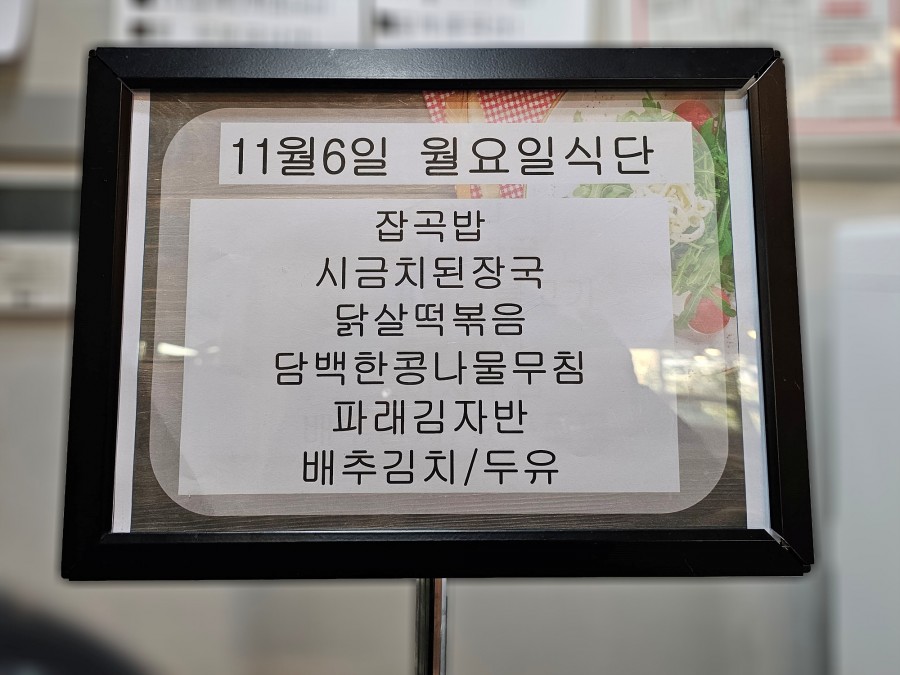 11월6일 월요일식단
잡곡밥
시금치된장국
닭살떡볶음
담백한콩나물무침
파래김자반
배추김치/두유